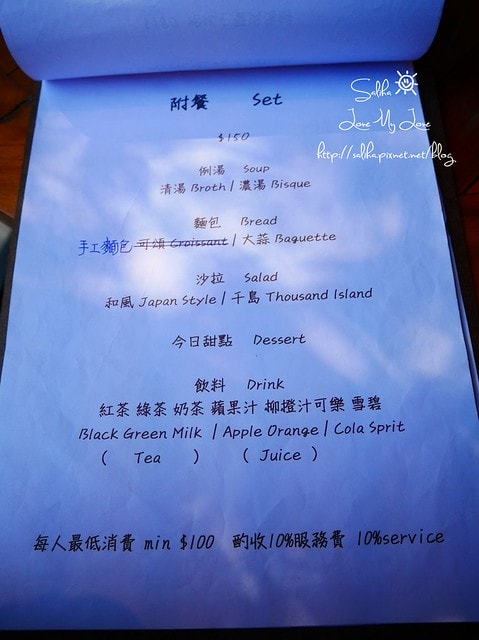 Saliha
Love My Love
http://saliha.pixnet.net/blog
附餐 Set
$150
例湯 Soup
清湯 Broth | 濃湯 Bisque
麵包 Bread
手工麵包 可頌 Croissant | 大蒜 Baguette
沙拉 Salad
和風 Japan Style | 千島 Thousand Island
今日甜點 Dessert
飲料 Drink
紅茶 綠茶 奶茶 蘋果汁 柳橙汁可樂 雪碧
Black Green Milk | Apple Orange | Cola Sprit
( Tea ) ( Juice )
每人最低消費 min $100 酌收10%服務費 10%service